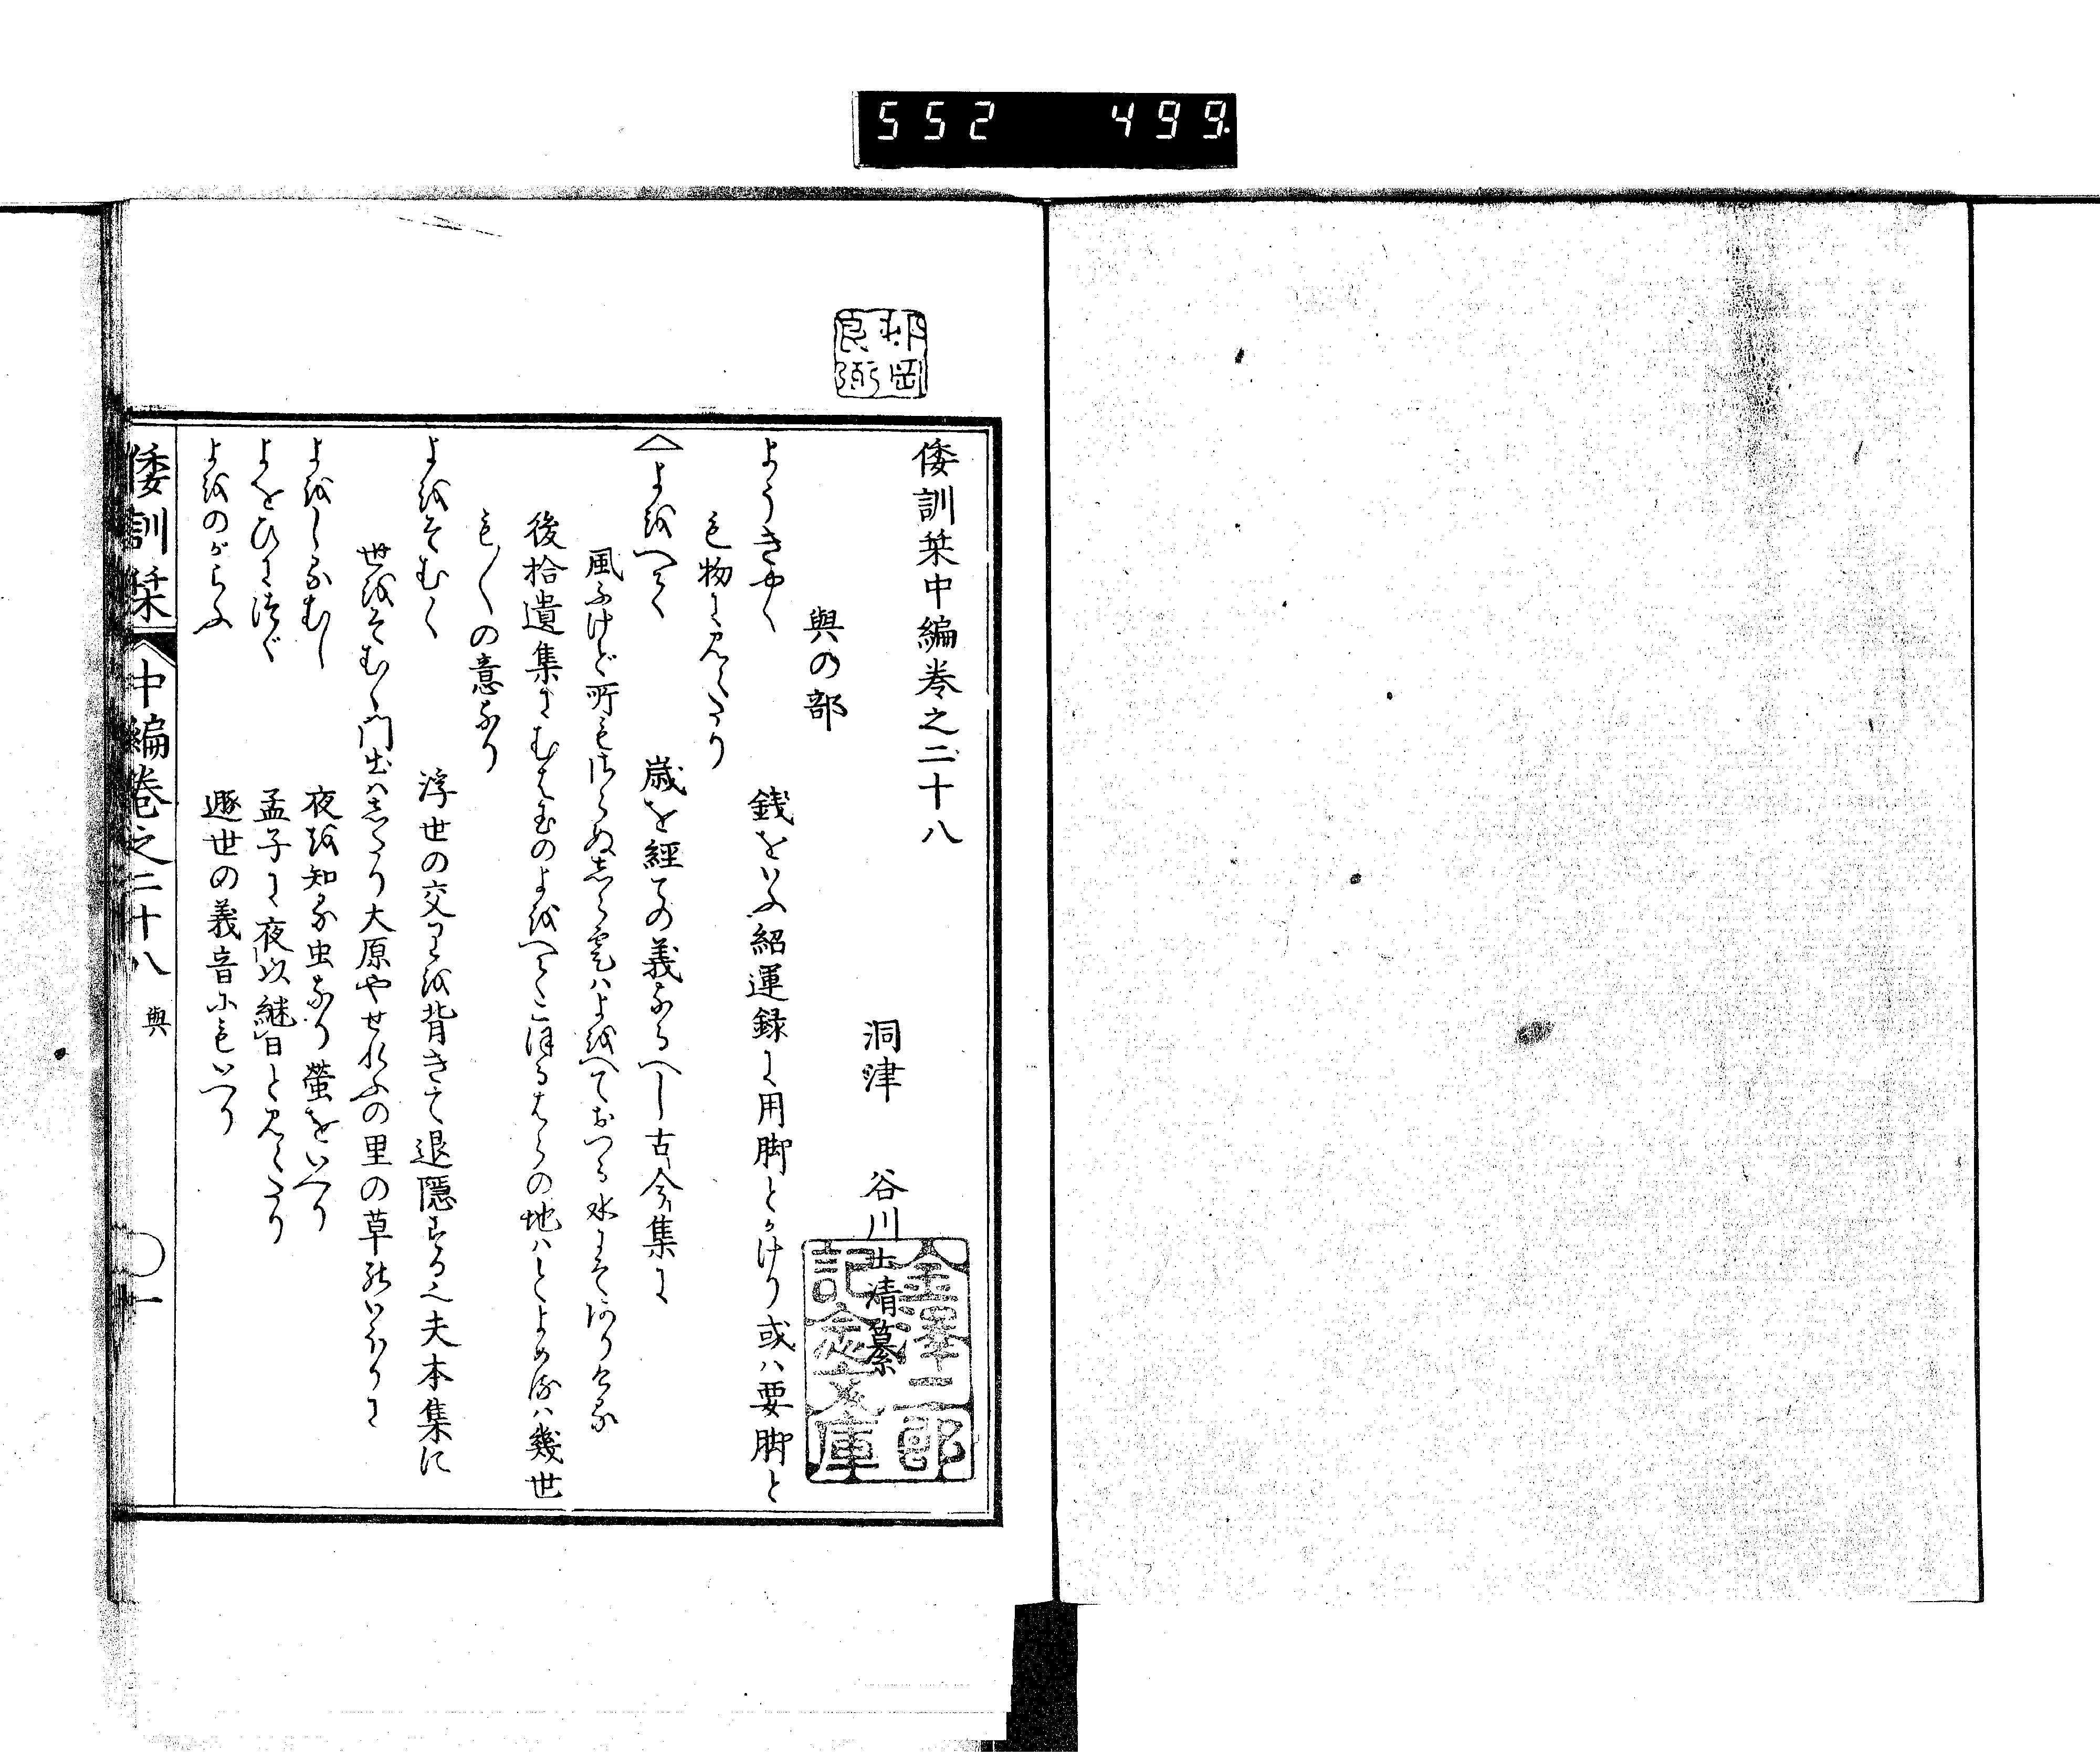 552 499
朝岡良弼
倭訓栞中編巻之二十八
洞津 谷川士清纂
金澤二郎
記念文庫
與の部
ようきやく 銭をいふ紹運録に用脚とかけり或ハ要脚と
も物に見えたり
よをへて 歳を經ての義なるへし古今集に
風ふけど所もさらぬしら雲ハよをへておつる水にそ有ける
後拾遺集にむさしのよをへて
の地ハとよめるハ幾世
も〳〵の意なり
よをそむく 浮世の交りを背きて退隠する也夫本集に
世をそむく門出ハしたり大原やせれふの里の草のいほりに
よをしるむし 夜を知る虫なり螢をいへり
よをひにつぐ 孟子に夜以継日と見えたり
よをのがらふ 遯世の義音にもいへり
倭訓栞 中編巻之二十八 與 一